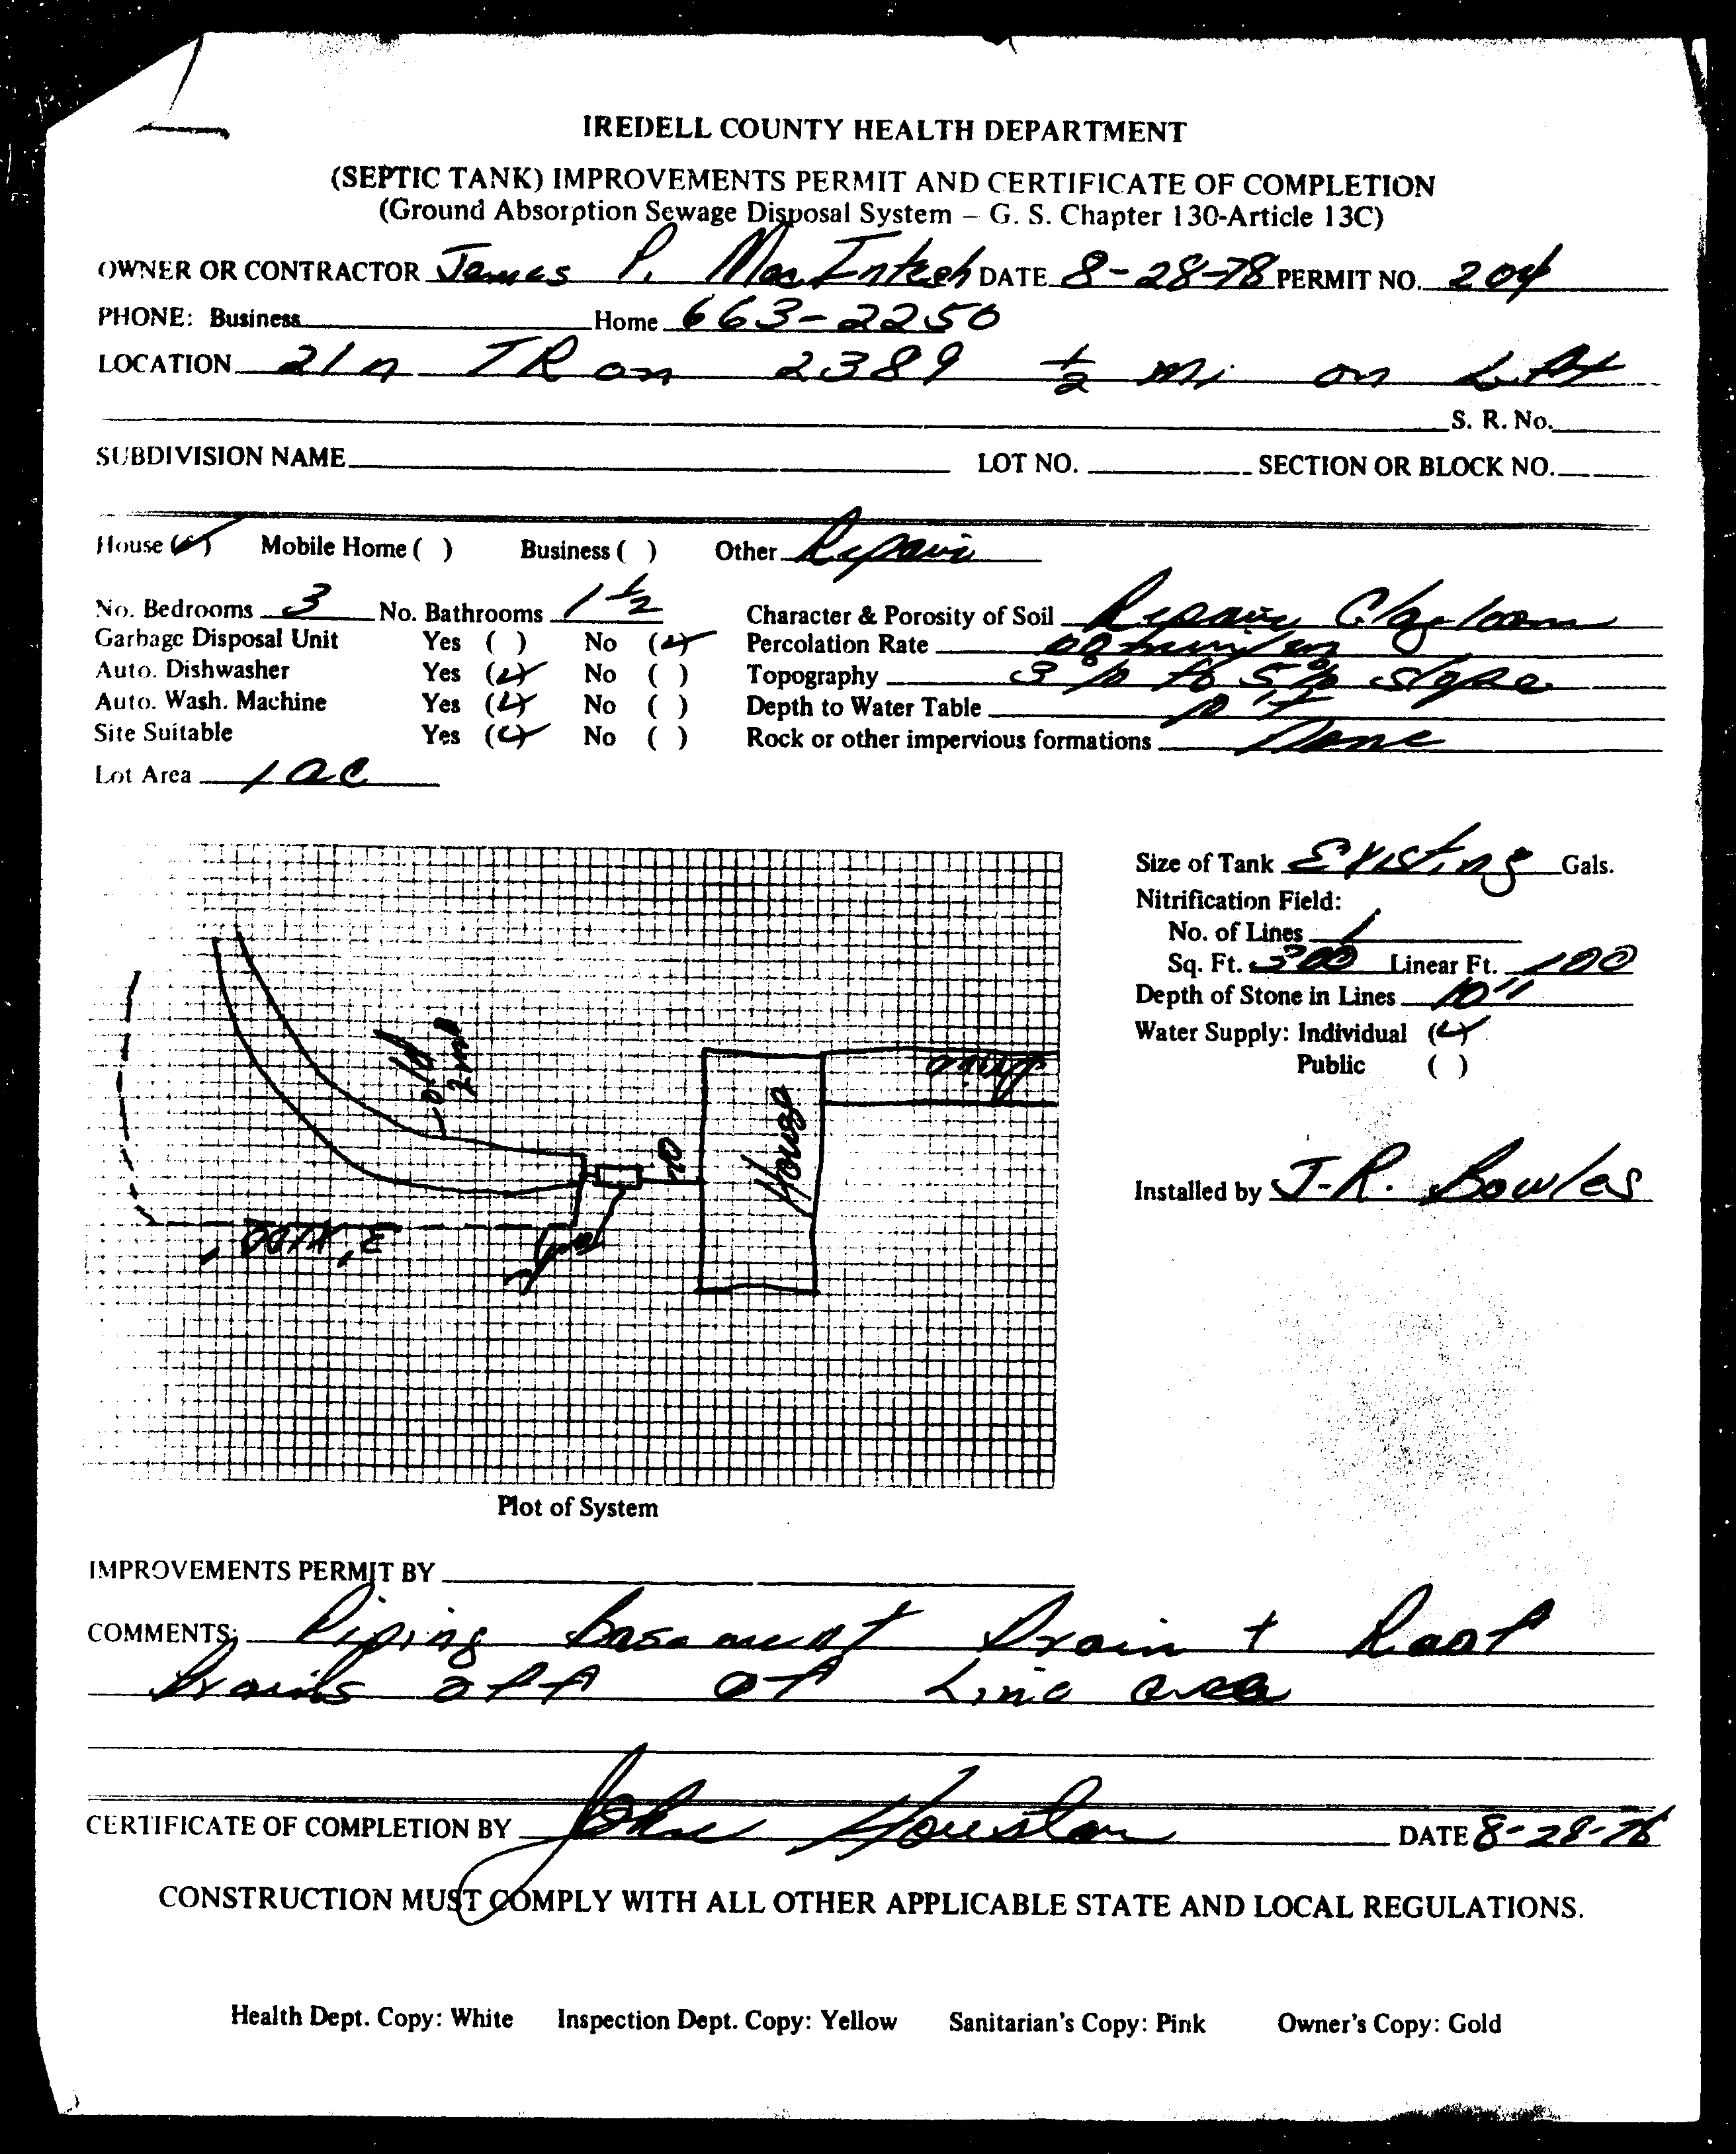 IREDELL COUNTY HEALTH DEPARTMENT
(SEPTIC TANK) IMPROVEMENTS PERMIT AND CERTIFICATE OF COMPLETION
(Ground Absorption Sewage Disposal System – G. S. Chapter 130-Article 13C)
OWNER OR CONTRACTOR James P. MacIntosh DATE 8-28-78 PERMIT NO. 204
PHONE: Business Home 663-2250
LOCATION 21 n TR on 2389 ½ mi on Left
S. R. No.
SUBDIVISION NAME LOT NO. SECTION OR BLOCK NO.
House (✓) Mobile Home ( ) Business ( ) Other Repair
No. Bedrooms 3 No. Bathrooms 1½ Character & Porosity of Soil Repair Clay loam
Garbage Disposal Unit Yes ( ) No (✓) Percolation Rate
Auto. Dishwasher Yes (✓) No ( ) Topography 3% to 5% slope
Auto. Wash. Machine Yes (✓) No ( ) Depth to Water Table
Site Suitable Yes (✓) No ( ) Rock or other impervious formations None
Lot Area 1 ac
Size of Tank Existing Gals.
Nitrification Field:
No. of Lines 1
Sq. Ft. 300 Linear Ft. 100
Depth of Stone in Lines 10"
Water Supply: Individual (✓)
Public ( )
Installed by J-R. Bowles
old
House
Drive
3' X 100'
Plot of System
IMPROVEMENTS PERMIT BY
COMMENTS: Piping basement Drain + Roof
Drains off of Line area
CERTIFICATE OF COMPLETION BY John Houston DATE 8-28-78
CONSTRUCTION MUST COMPLY WITH ALL OTHER APPLICABLE STATE AND LOCAL REGULATIONS.
Health Dept. Copy: White Inspection Dept. Copy: Yellow Sanitarian's Copy: Pink Owner's Copy: Gold